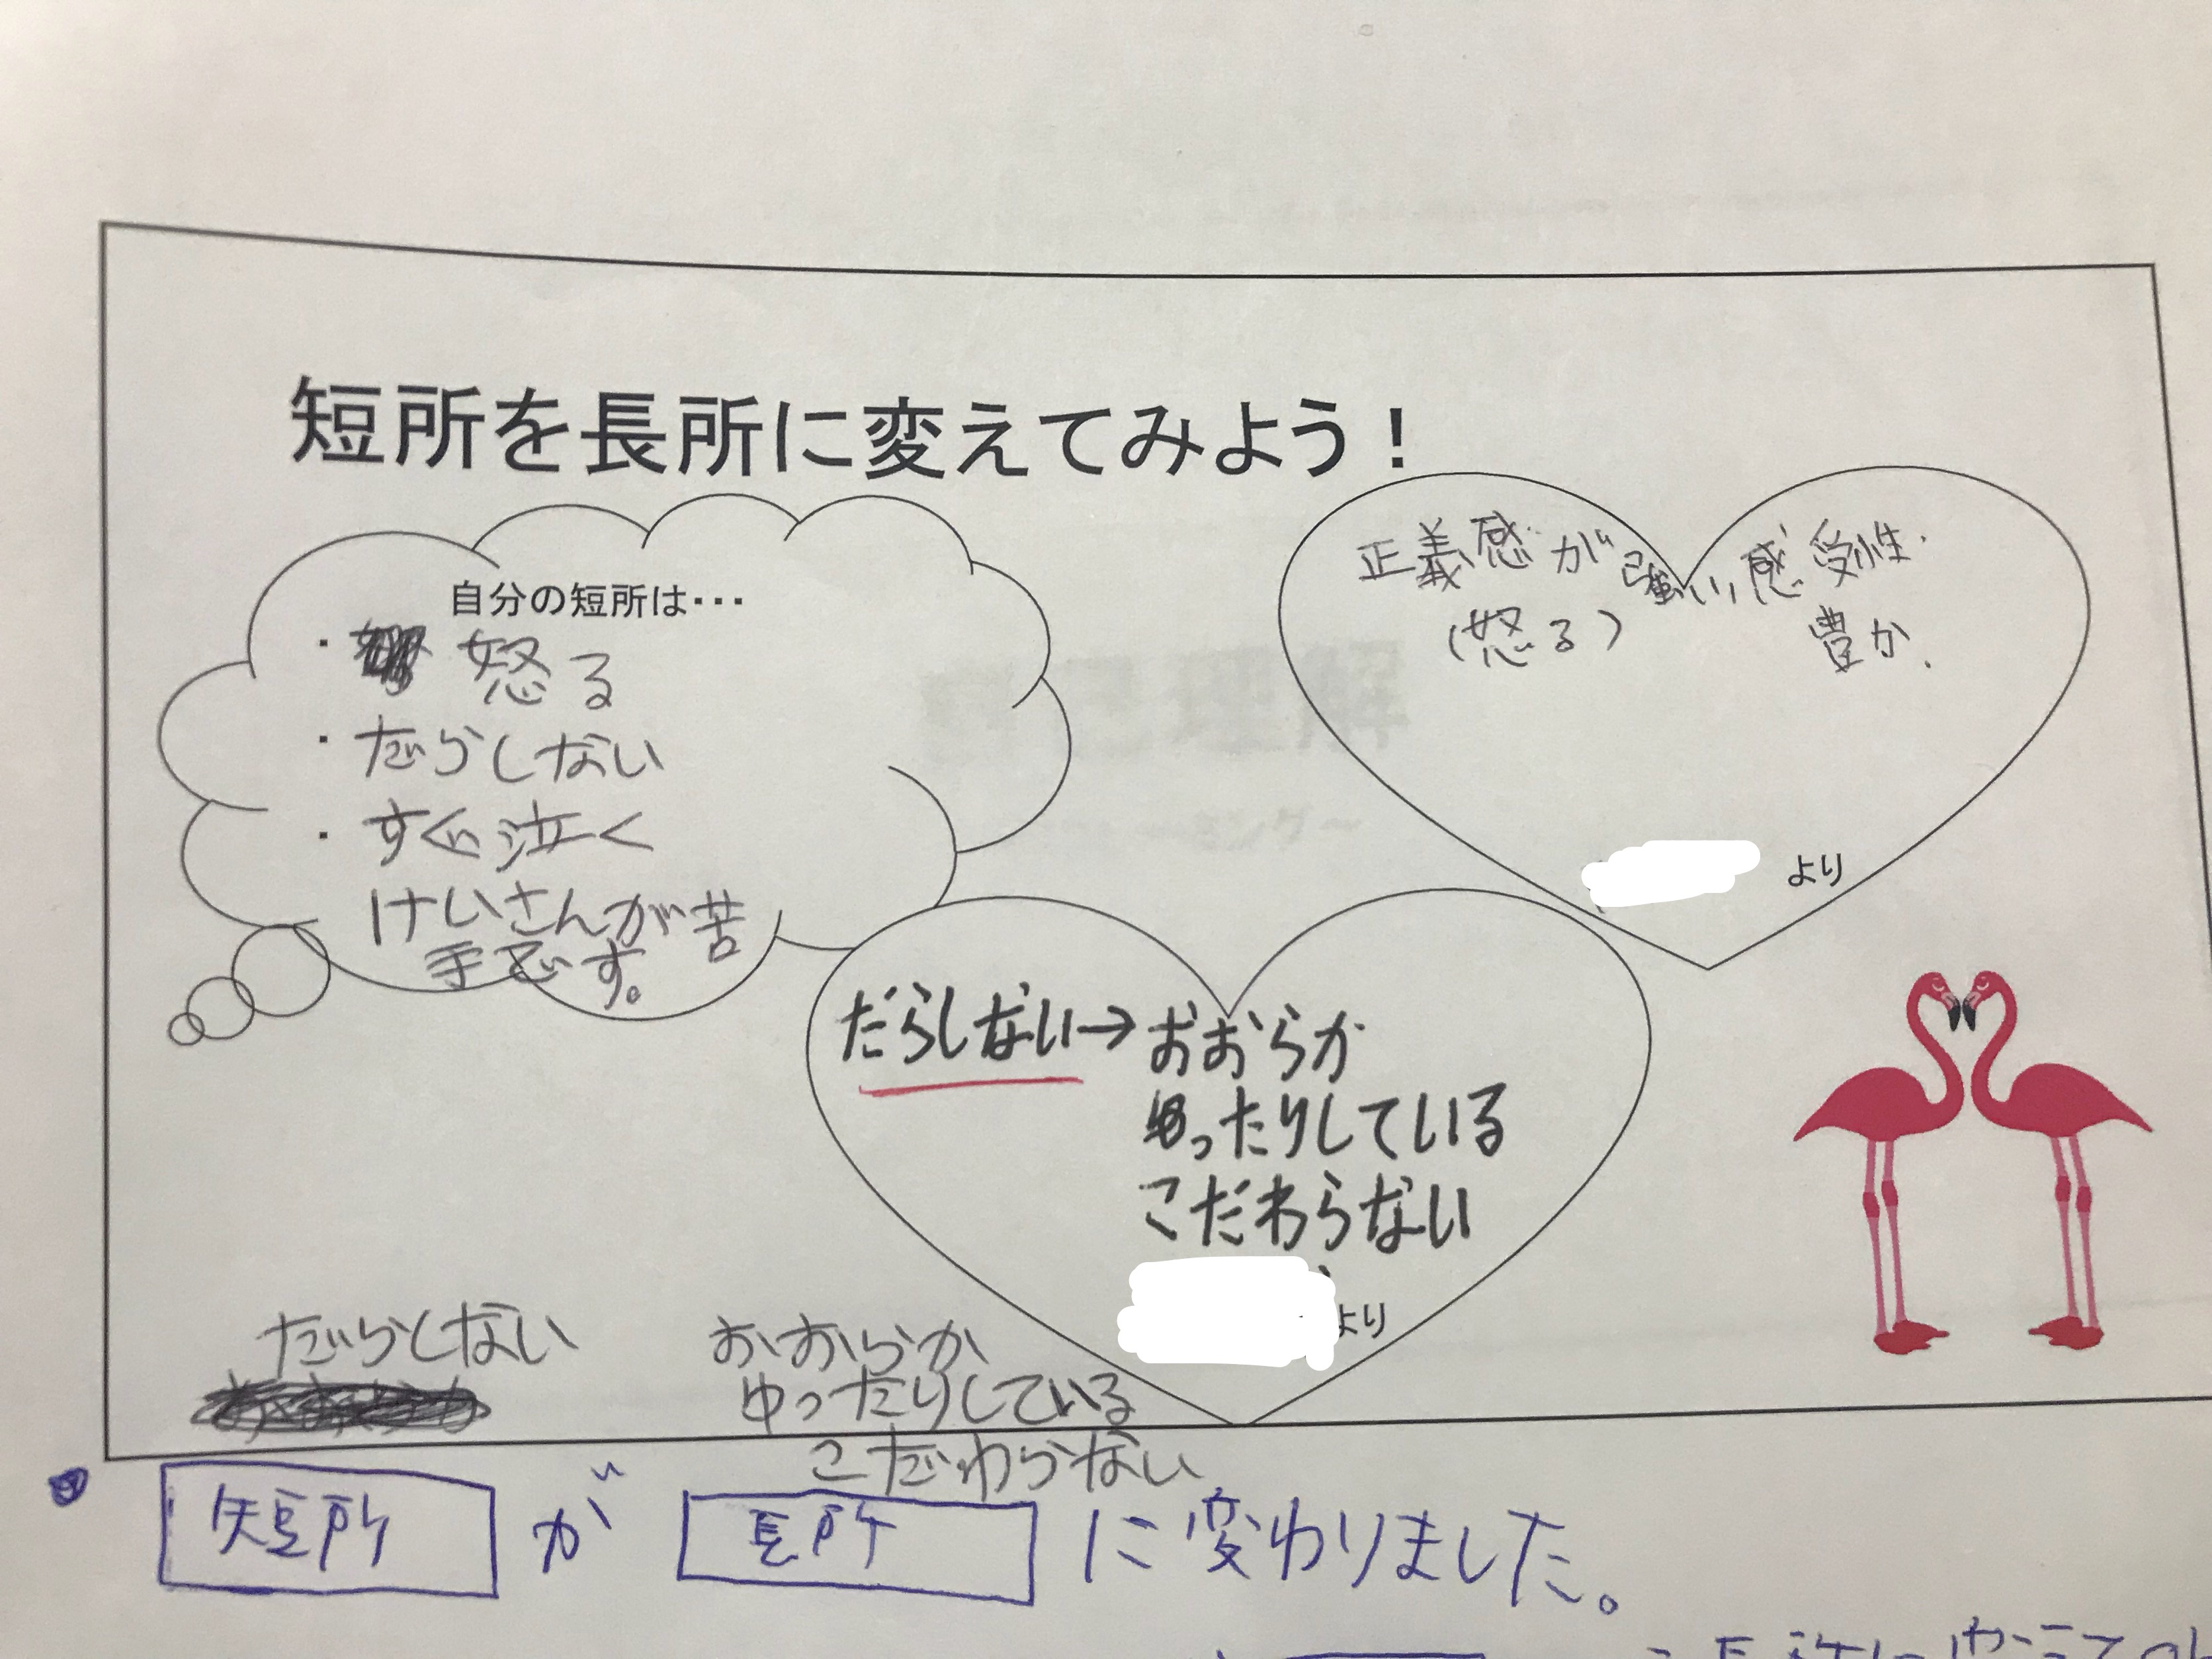 短所を長所に変えてみよう！
自分の短所は・・・
・怒る
・だらしない
・すぐ泣く
けいさんが苦
手です。
正義感が強い,感受性
(怒る)
豊か.
より
だらしない→おおらか
ゆったりしている
こだわらない
より
だらしない
おおらか
ゆったりしている
こだわらない
短所が長所に変わりました。